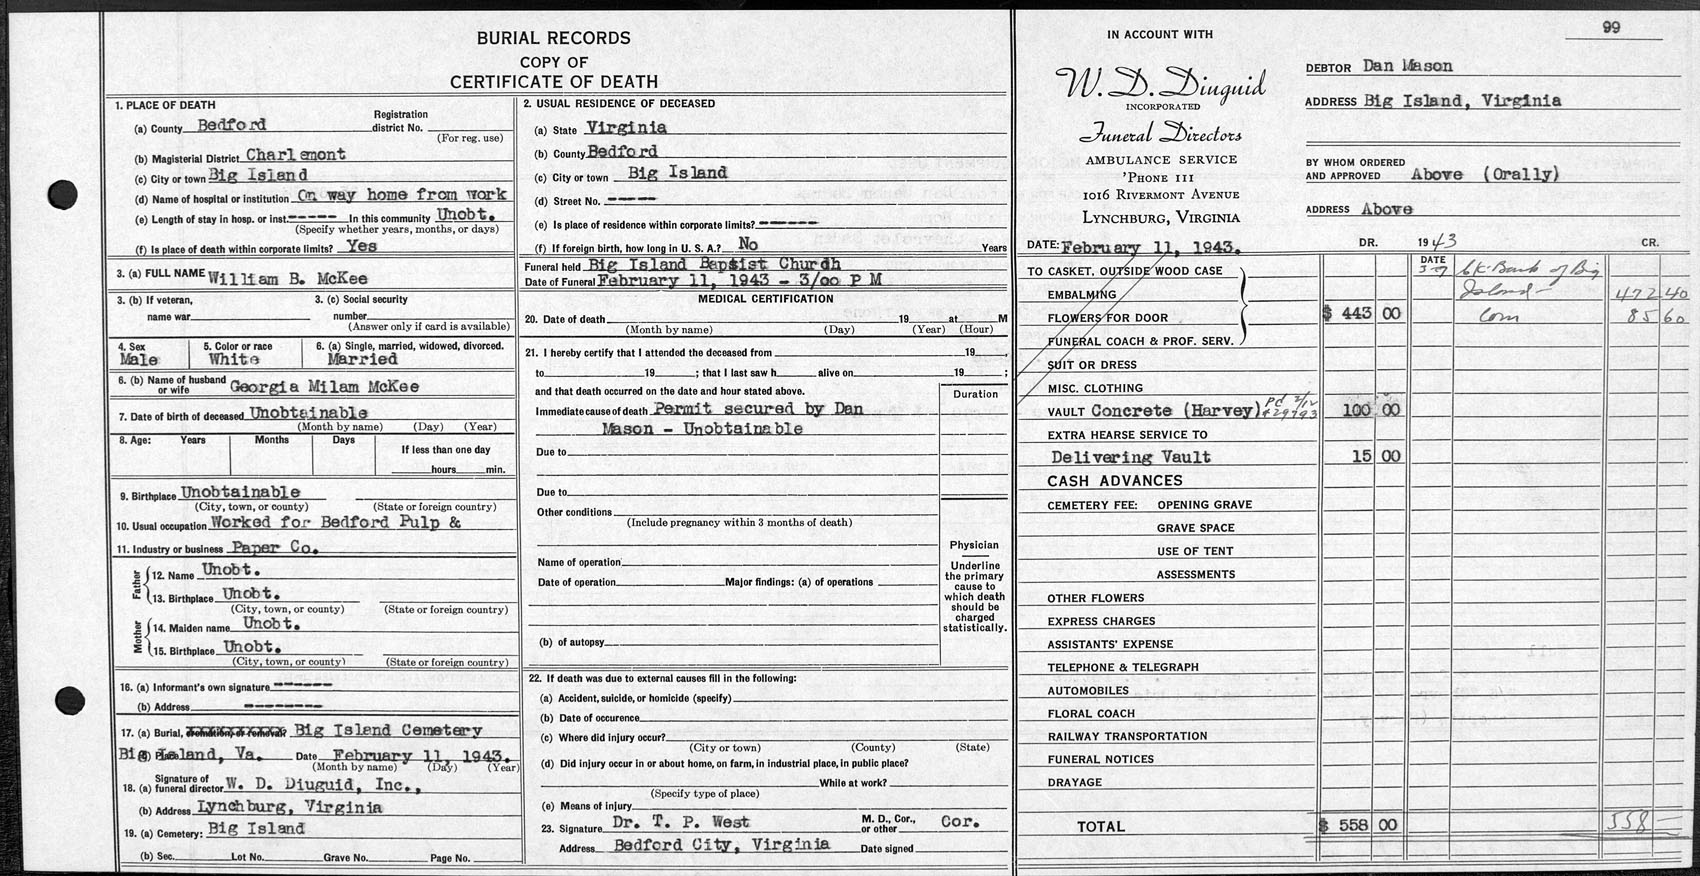 BURIAL RECORDS
COPY OF
CERTIFICATE OF DEATH
1. PLACE OF DEATH
(a) County Bedford Registration district No.
(For reg. use)
(b) Magisterial District Charlemont
(c) City or town Big Island
(d) Name of hospital or institution On way home from work
(e) Length of stay in hosp. or inst. ----- In this community Unobt.
(Specify whether years, months, or days)
(f) Is place of death within corporate limits? Yes
3. (a) FULL NAME William B. McKee
3. (b) If veteran, 3. (c) Social security
name war number
(Answer only if card is available)
4. Sex 5. Color or race 6. (a) Single, married, widowed, divorced.
Male White Married
6. (b) Name of husband or wife Georgia Milam McKee
7. Date of birth of deceased Unobtainable
(Month by name) (Day) (Year)
8. Age: Years Months Days If less than one day
hours min.
9. Birthplace Unobtainable
(City, town, or county) (State or foreign country)
10. Usual occupation Worked for Bedford Pulp &
11. Industry or business Paper Co.
Father
12. Name Unobt.
13. Birthplace Unobt.
(City, town, or county) (State or foreign country)
Mother
14. Maiden name Unobt.
15. Birthplace Unobt.
(City, town, or county) (State or foreign country)
16. (a) Informant's own signature ------
(b) Address --------
17. (a) Burial, cremation, or removal? Big Island Cemetery
(b) Place Big Island, Va. Date February 11, 1943.
(Month by name) (Day) (Year)
18. (a) Signature of funeral director W. D. Diuguid, Inc.,
(b) Address Lynchburg, Virginia
19. (a) Cemetery: Big Island
(b) Sec. Lot No. Grave No. Page No.
2. USUAL RESIDENCE OF DECEASED
(a) State Virginia
(b) County Bedford
(c) City or town Big Island
(d) Street No. -----
(e) Is place of residence within corporate limits? ------
(f) If foreign birth, how long in U. S. A.? No Years
Funeral held Big Island Baptist Church
Date of Funeral February 11, 1943 - 3/00 P M
MEDICAL CERTIFICATION
20. Date of death 19 at M
(Month by name) (Day) (Year) (Hour)
21. I hereby certify that I attended the deceased from 19 ,
to 19 ; that I last saw h alive on 19 ;
and that death occurred on the date and hour stated above.
Duration
Immediate cause of death Permit secured by Dan
Mason - Unobtainable
Due to
Due to
Other conditions
(Include pregnancy within 3 months of death)
Physician
Underline
the primary
cause to
which death
should be
charged
statistically.
Name of operation
Date of operation Major findings: (a) of operations
(b) of autopsy
22. If death was due to external causes fill in the following:
(a) Accident, suicide, or homicide (specify)
(b) Date of occurence
(c) Where did injury occur?
(City or town) (County) (State)
(d) Did injury occur in or about home, on farm, in industrial place, in public place?
While at work?
(Specify type of place)
(e) Means of injury
23. Signature Dr. T. P. West M. D., Cor., or other Cor.
Address Bedford City, Virginia Date signed
99
IN ACCOUNT WITH
W. D. Diuguid
INCORPORATED
Funeral Directors
AMBULANCE SERVICE
'PHONE 111
1016 RIVERMONT AVENUE
LYNCHBURG, VIRGINIA
DEBTOR Dan Mason
ADDRESS Big Island, Virginia
BY WHOM ORDERED
AND APPROVED Above (Orally)
ADDRESS Above
DATE: February 11, 1943. DR. 1943 CR.
DATE
TO CASKET, OUTSIDE WOOD CASE 3-9 Ck Bank of Big
EMBALMING Island - 472 40
FLOWERS FOR DOOR $ 443 00 Com 85 60
FUNERAL COACH & PROF. SERV.
SUIT OR DRESS
MISC. CLOTHING
VAULT Concrete (Harvey) Pd 2/12 #29793 100 00
EXTRA HEARSE SERVICE TO
Delivering Vault 15 00
CASH ADVANCES
CEMETERY FEE: OPENING GRAVE
GRAVE SPACE
USE OF TENT
ASSESSMENTS
OTHER FLOWERS
EXPRESS CHARGES
ASSISTANTS' EXPENSE
TELEPHONE & TELEGRAPH
AUTOMOBILES
FLORAL COACH
RAILWAY TRANSPORTATION
FUNERAL NOTICES
DRAYAGE
TOTAL $ 558 00 558 -